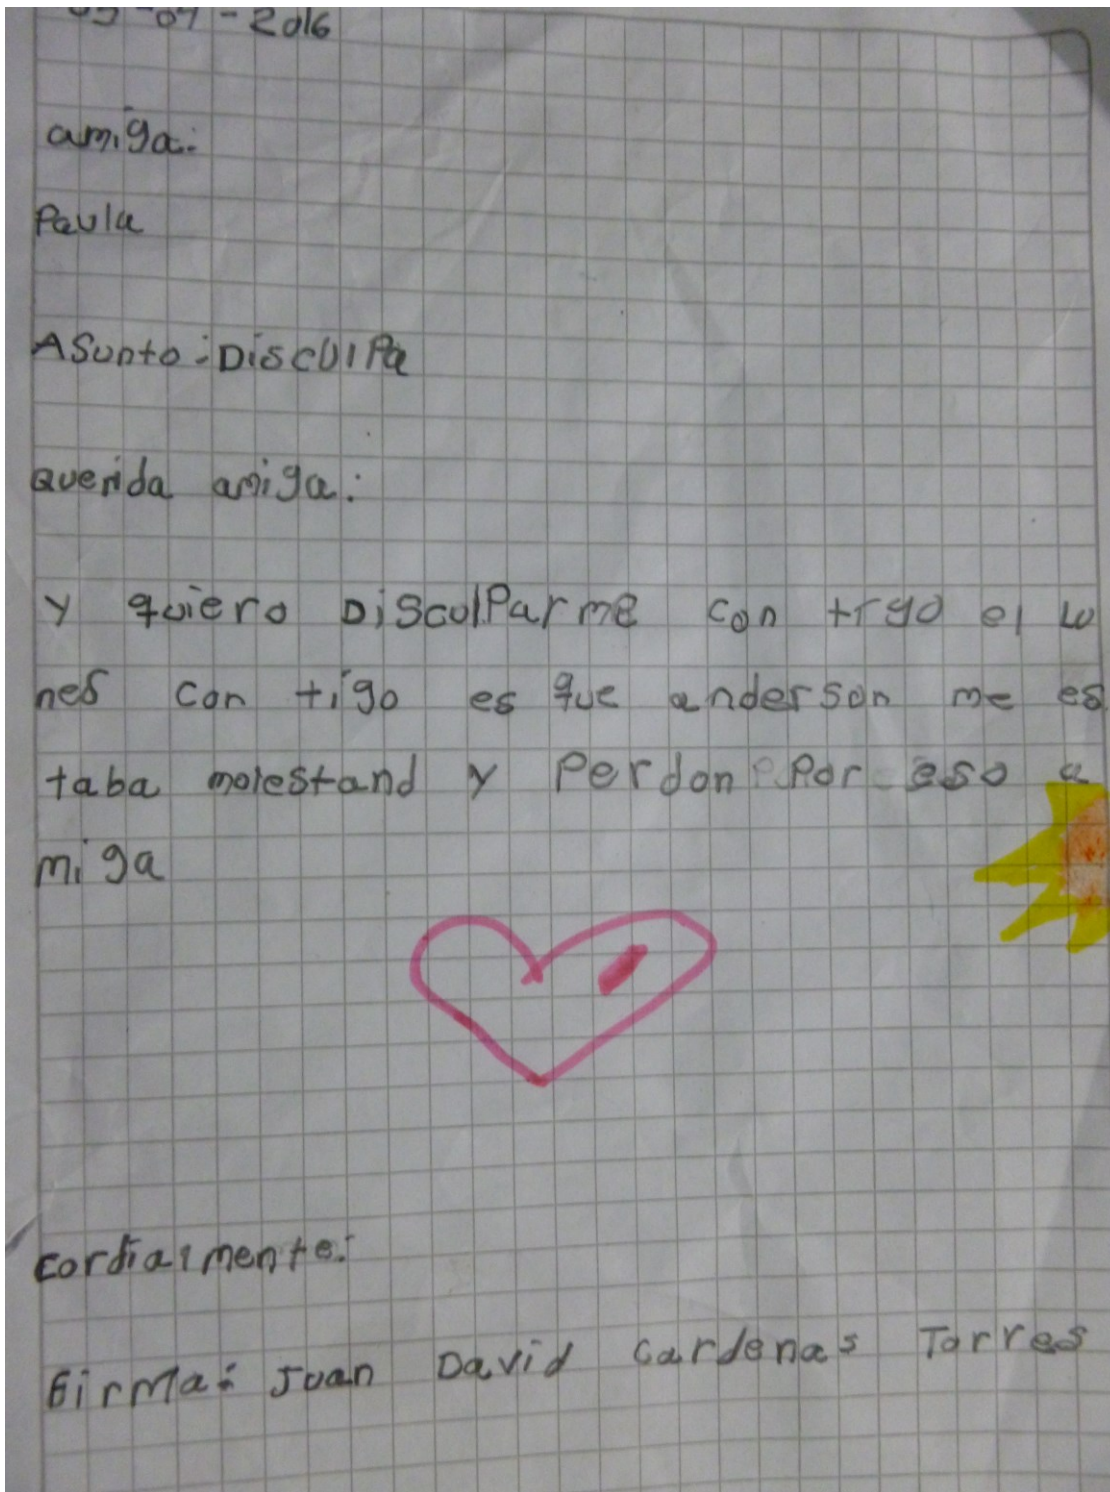 -2016
amiga:
Paula
Asunto: Disculpa
querida amiga:
y quiero Disculparme con tigo el lu
nes con tigo es que anderson me es
taba molestand y Perdon Por eso a
miga
cordialmente:
Firma: Juan David Cardenas Torres